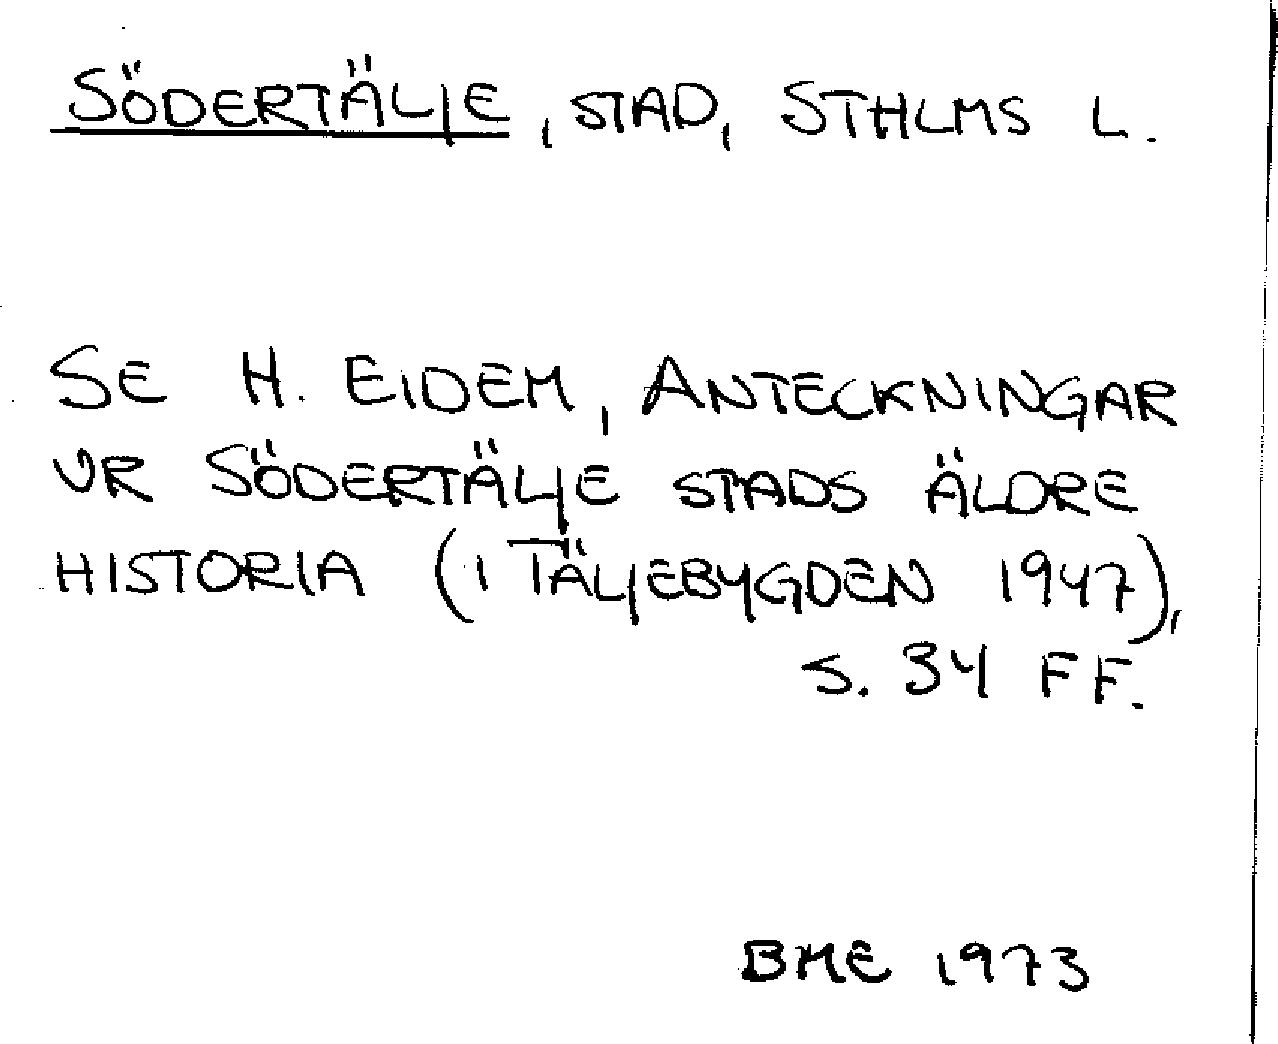 SÖDERTÄLJE, STAD, STHLMS L.
SE H. EIDEM, ANTECKNINGAR
UR SÖDERTÄLJE STADS ÄLDRE
HISTORIA (I TÄLJEBYGDEN 1947),
S. 34 FF.
BME 1973